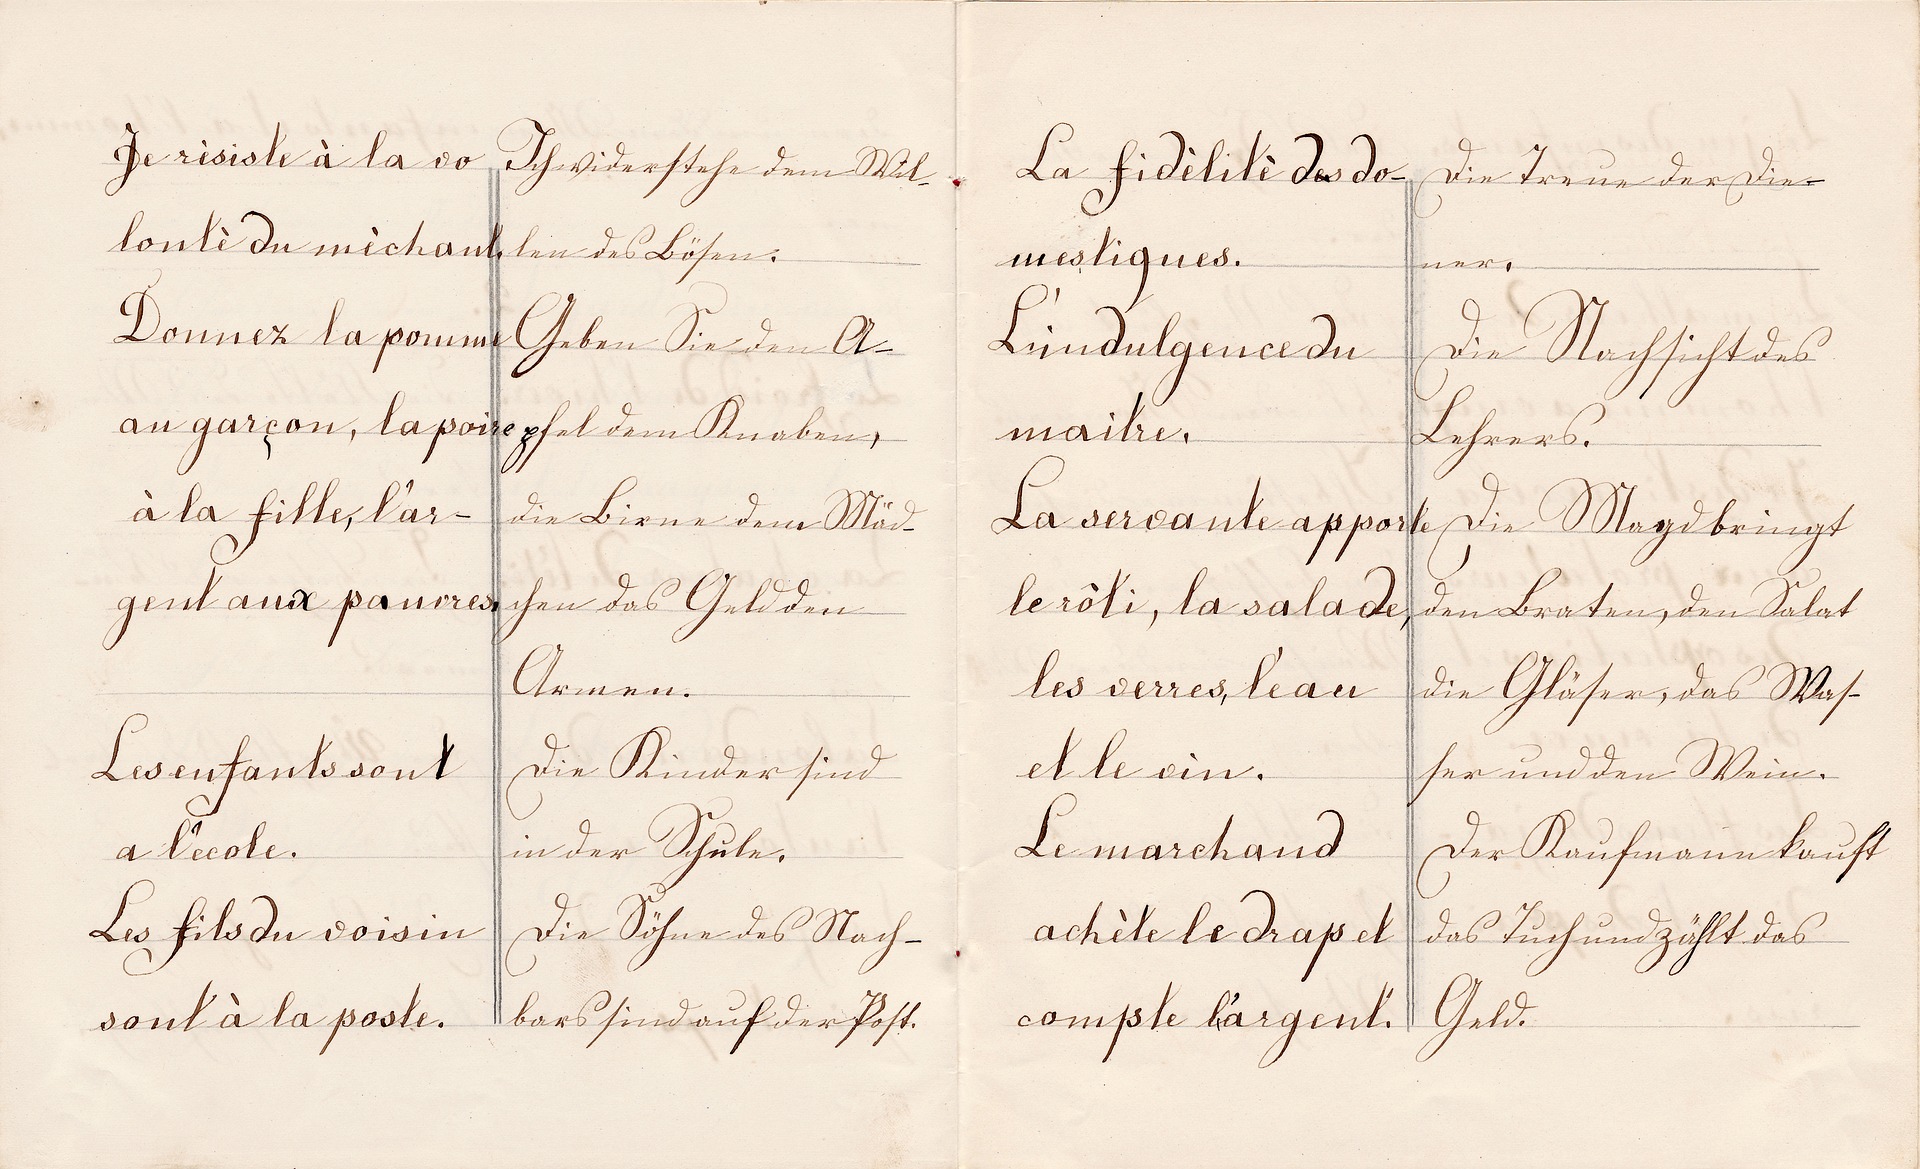 Je rèsiste à la vo
lontè du mèchant.
Donnez la pomme
au garçon, la poire
à la fille, l'ar-
gent aux pauvres.
Les enfants sont
a l'ècole.
Les fils du voisin
sont à la poste.
Ich widerstehe dem Wil-
len des Bösen.
Geben Sie den A-
pfel dem Knaben,
die Birne dem Mäd-
chen das Geld den
Armen.
Die Kinder sind
in der Schule.
Die Söhne des Nach-
bars sind auf der Post.
La fidèlitè des do-
mestiques.
L'indulgence du
maitre.
La servante apporte
le rôti, la salade,
les verres, l'eau
et le vin.
Le marchand
achète le drap et
compte l'argent.
Die Treue der Die-
ner.
Die Nachsicht des
Lehrers.
Die Magd bringt
den Braten, den Salat
die Gläser, das Was-
ser und den Wein.
Der Kaufmann kauft
das Tuch und zählt das
Geld.